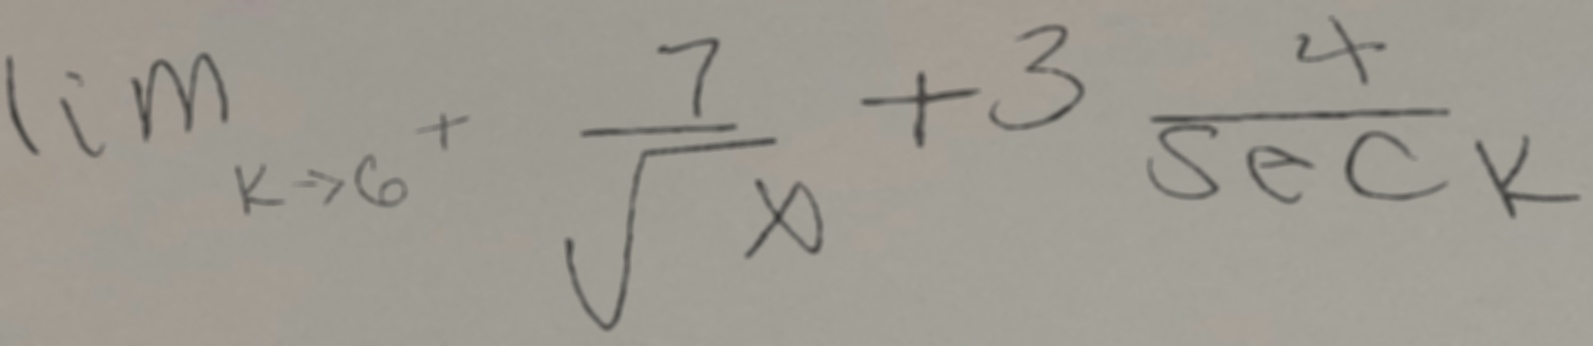 \lim_{k \to 6^+} \frac{7}{\sqrt{x}} + 3 \frac{4}{\sec k}